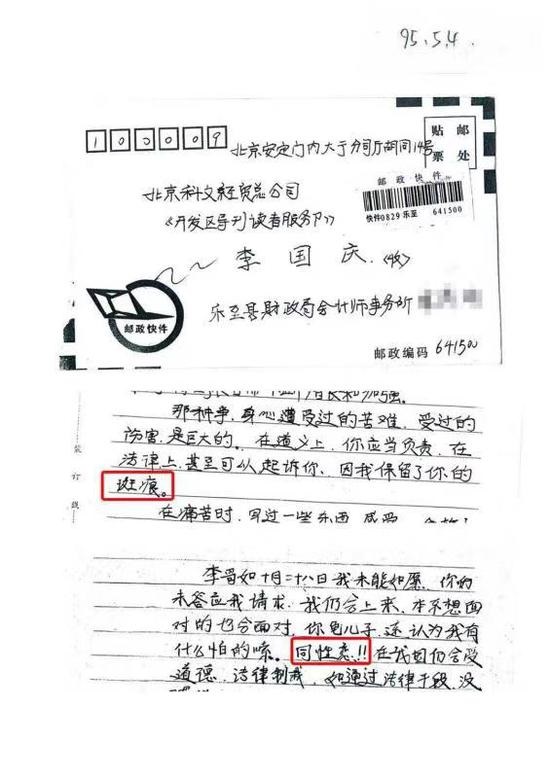 95.5.4.
100009
贴 邮
票 处
北京安定门内大于分司厅胡同14号
邮政快件
北京科文经贸总公司
快件0829 乐至 641500
《开发区导刊读者服务卩》
李 国 庆 (收)
乐至县财政局会计师事务所
邮政快件
邮政编码 641500
增长和加强。
那种事,身心遭受过的苦难,受过的
伤害,是巨大的。在道义上,你应当负责,在
法律上,甚至可以起诉你,因我保留了你的
斑痕。
在痛苦时,写过一些东西
装订线
李哥如十月二十八日我未能如愿,你的
未答应我请求,我仍会上来,本不想面
对的也会面对,你龟儿子,还认为我有
什么怕的嗦。同性恋!!在我国仍会受
道德,法律制裁,如通过法律手段,没